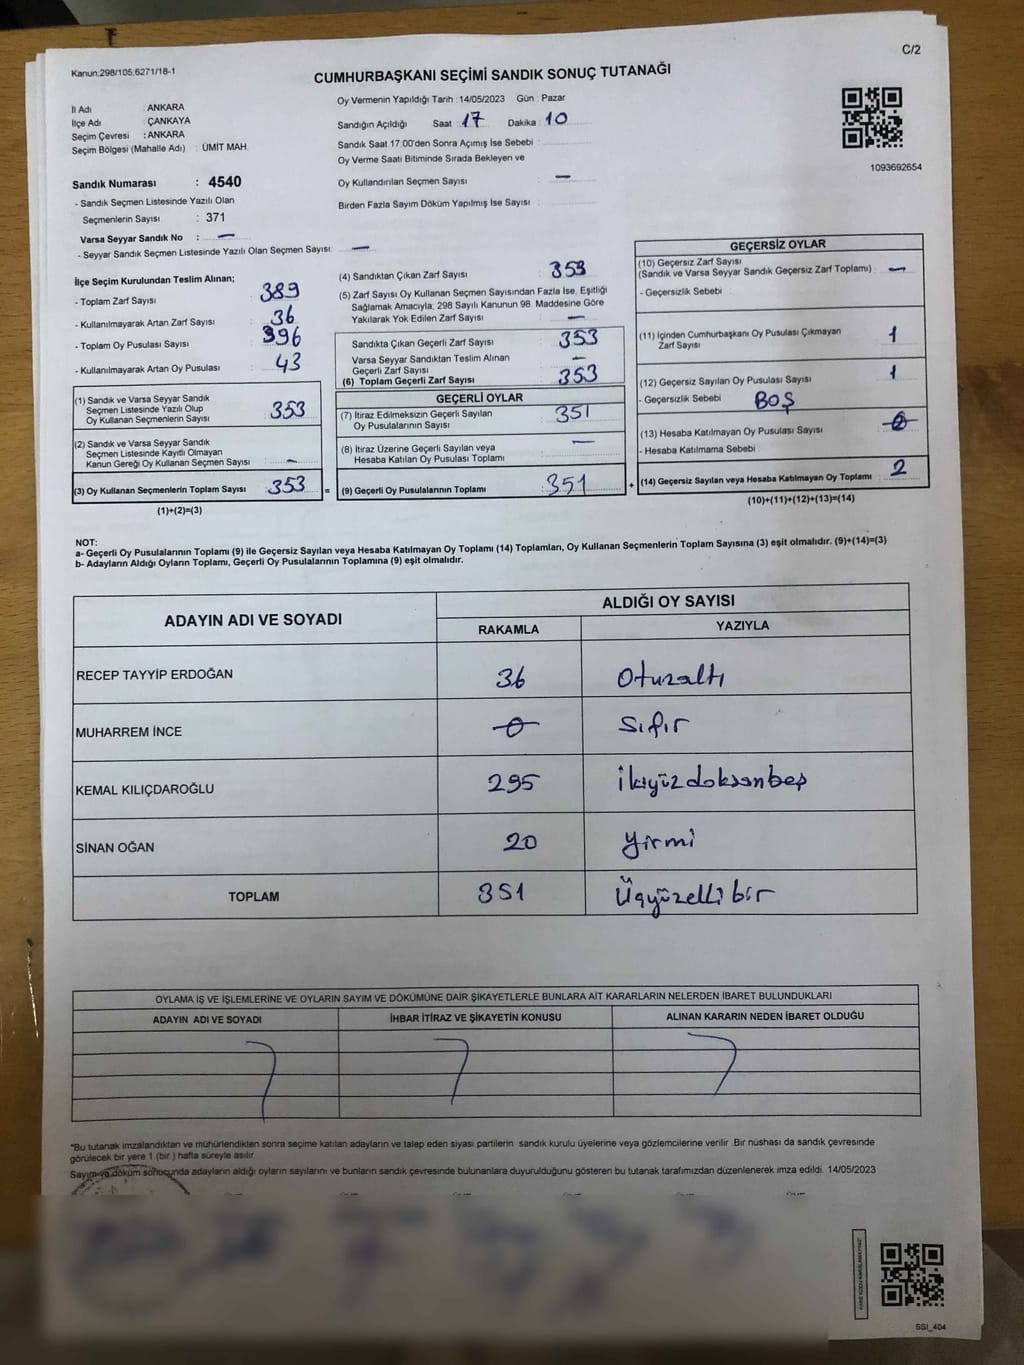 C/2
Kanun:298/105,6271/18-1
CUMHURBAŞKANI SEÇİMİ SANDIK SONUÇ TUTANAĞI
İl Adı : ANKARA
İlçe Adı : ÇANKAYA
Seçim Çevresi : ANKARA
Seçim Bölgesi (Mahalle Adı) : ÜMİT MAH.
Sandık Numarası : 4540
- Sandık Seçmen Listesinde Yazılı Olan
Seçmenlerin Sayısı : 371
Varsa Seyyar Sandık No : —
- Seyyar Sandık Seçmen Listesinde Yazılı Olan Seçmen Sayısı: —
Oy Vermenin Yapıldığı Tarih : 14/05/2023 Gün : Pazar
Sandığın Açıldığı Saat : 17 Dakika : 10
Sandık Saat 17:00'den Sonra Açımış İse Sebebi :
Oy Verme Saati Bitiminde Sırada Bekleyen ve
Oy Kullandırılan Seçmen Sayısı : —
Birden Fazla Sayım Döküm Yapılmış İse Sayısı :
1093692654
İlçe Seçim Kurulundan Teslim Alınan;
- Toplam Zarf Sayısı : 389
- Kullanılmayarak Artan Zarf Sayısı : 36
- Toplam Oy Pusulası Sayısı : 396
- Kullanılmayarak Artan Oy Pusulası : 43
(1) Sandık ve Varsa Seyyar Sandık
Seçmen Listesinde Yazılı Olup
Oy Kullanan Seçmenlerin Sayısı : 353
(2) Sandık ve Varsa Seyyar Sandık
Seçmen Listesinde Kayıtlı Olmayan
Kanun Gereği Oy Kullanan Seçmen Sayısı : —
(3) Oy Kullanan Seçmenlerin Toplam Sayısı : 353 =
(1)+(2)=(3)
(4) Sandıktan Çıkan Zarf Sayısı : 353
(5) Zarf Sayısı Oy Kullanan Seçmen Sayısından Fazla İse, Eşitliği
Sağlamak Amacıyla, 298 Sayılı Kanunun 98. Maddesine Göre
Yakılarak Yok Edilen Zarf Sayısı : —
Sandıkta Çıkan Geçerli Zarf Sayısı : 353
Varsa Seyyar Sandıktan Teslim Alınan
Geçerli Zarf Sayısı : —
(6) Toplam Geçerli Zarf Sayısı : 353
GEÇERLİ OYLAR
(7) İtiraz Edilmeksizin Geçerli Sayılan
Oy Pusulalarının Sayısı : 351
(8) İtiraz Üzerine Geçerli Sayılan veya
Hesaba Katılan Oy Pusulası Toplamı : —
(9) Geçerli Oy Pusulalarının Toplamı : 351 +
GEÇERSİZ OYLAR
(10) Geçersiz Zarf Sayısı
(Sandık ve Varsa Seyyar Sandık Geçersiz Zarf Toplamı) : —
- Geçersizlik Sebebi :
(11) İçinden Cumhurbaşkanı Oy Pusulası Çıkmayan
Zarf Sayısı : 1
(12) Geçersiz Sayılan Oy Pusulası Sayısı : 1
- Geçersizlik Sebebi : BOŞ
(13) Hesaba Katılmayan Oy Pusulası Sayısı : 0
- Hesaba Katılmama Sebebi :
(14) Geçersiz Sayılan veya Hesaba Katılmayan Oy Toplamı : 2
(10)+(11)+(12)+(13)=(14)
NOT:
a- Geçerli Oy Pusulalarının Toplamı (9) ile Geçersiz Sayılan veya Hesaba Katılmayan Oy Toplamı (14) Toplamları, Oy Kullanan Seçmenlerin Toplam Sayısına (3) eşit olmalıdır. (9)+(14)=(3)
b- Adayların Aldığı Oyların Toplamı, Geçerli Oy Pusulalarının Toplamına (9) eşit olmalıdır.
ADAYIN ADI VE SOYADI
ALDIĞI OY SAYISI
RAKAMLA YAZIYLA
RECEP TAYYİP ERDOĞAN 36 Otuzaltı
MUHARREM İNCE 0 Sıfır
KEMAL KILIÇDAROĞLU 295 İkiyüzdoksanbeş
SİNAN OĞAN 20 Yirmi
TOPLAM 351 Üçyüzellibir
OYLAMA İŞ VE İŞLEMLERİNE VE OYLARIN SAYIM VE DÖKÜMÜNE DAİR ŞİKAYETLERLE BUNLARA AİT KARARLARIN NELERDEN İBARET BULUNDUKLARI
ADAYIN ADI VE SOYADI İHBAR İTİRAZ VE ŞİKAYETİN KONUSU ALINAN KARARIN NEDEN İBARET OLDUĞU
*Bu tutanak imzalandıktan ve mühürlendikten sonra seçime katılan adayların ve talep eden siyasi partilerin sandık kurulu üyelerine veya gözlemcilerine verilir .Bir nüshası da sandık çevresinde
görülecek bir yere 1 (bir ) hafta süreyle asılır.
Sayım ve döküm sonucunda adayların aldığı oyların sayılarını ve bunların sandık çevresinde bulunanlara duyurulduğunu gösteren bu tutanak tarafımızdan düzenlenerek imza edildi. 14/05/2023
SSI_404